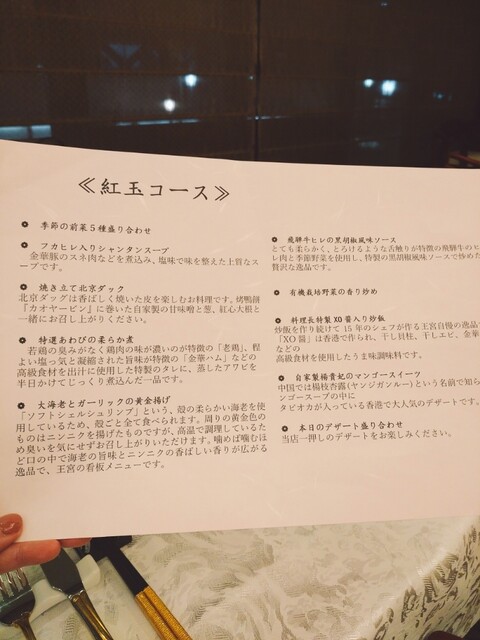 ≪紅玉コース≫
季節の前菜5種盛り合わせ
フカヒレ入りシャンタンスープ
金華豚のスネ肉などを煮込み、塩味で味を整えた上質なス
ープです。
焼き立て北京ダック
北京ダックは香ばしく焼いた皮を楽しむお料理です。烤鴨餅
『カオヤーピン』に巻いた自家製の甘味噌と葱、紅心大根と
一緒にお召し上がりください。
特選あわびの柔らか煮
若鶏の臭みがなく鶏肉の味が濃いのが特徴の「老鶏」、程
よい塩っ気と凝縮された旨味が特徴の「金華ハム」などの
高級食材を出汁に使用した特製のタレに、蒸したアワビを
半日かけてじっくり煮込んだ一品です。
大海老とガーリックの黄金揚げ
「ソフトシェルシュリンプ」という、殻の柔らかい海老を使
用しているため、殻ごと全て食べられます。周りの黄金色の
ものはニンニクを揚げたものですが、高温で調理しているた
め臭いを気にせずお召し上がりいただけます。噛めば噛むほ
ど口の中で海老の旨味とニンニクの香ばしい香りが広がる
逸品で、王宮の看板メニューです。
飛騨牛ヒレの黒胡椒風味ソース
とても柔らかく、とろけるような舌触りが特徴の飛騨牛のヒ
レ肉と季節野菜を使用し、特製の黒胡椒風味ソースで炒めた
贅沢な逸品です。
有機栽培野菜の香り炒め
料理長特製XO醤入り炒飯
炒飯を作り続けて15年のシェフが作る王宮自慢の逸品
「XO醤」は香港で作られ、干し貝柱、干しエビ、金華
などの
高級食材を使用したうま味調味料です。
自家製楊貴妃のマンゴースイーツ
中国では楊枝杏露(ヤンジガンルー)という名前で知ら
ンゴースープの中に
タピオカが入っている香港で大人気のデザートです。
本日のデザート盛り合わせ
当店一押しのデザートをお楽しみください。